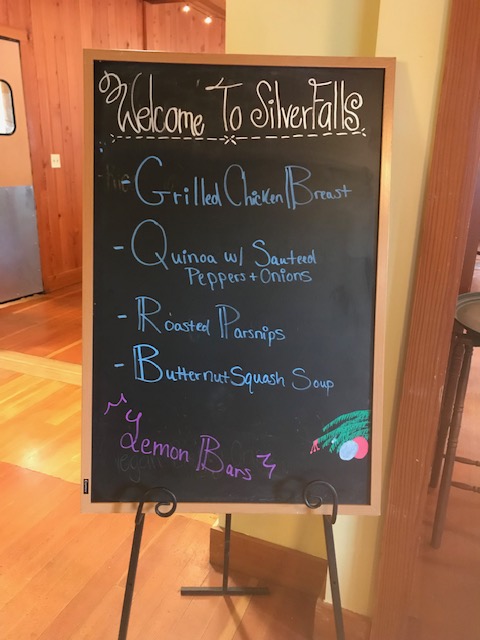 Welcome To Silver Falls
- Grilled Chicken Breast
- Quinoa w/ Sauteed
Peppers + Onions
- Roasted Parsnips
- Butternut Squash Soup
Lemon Bars